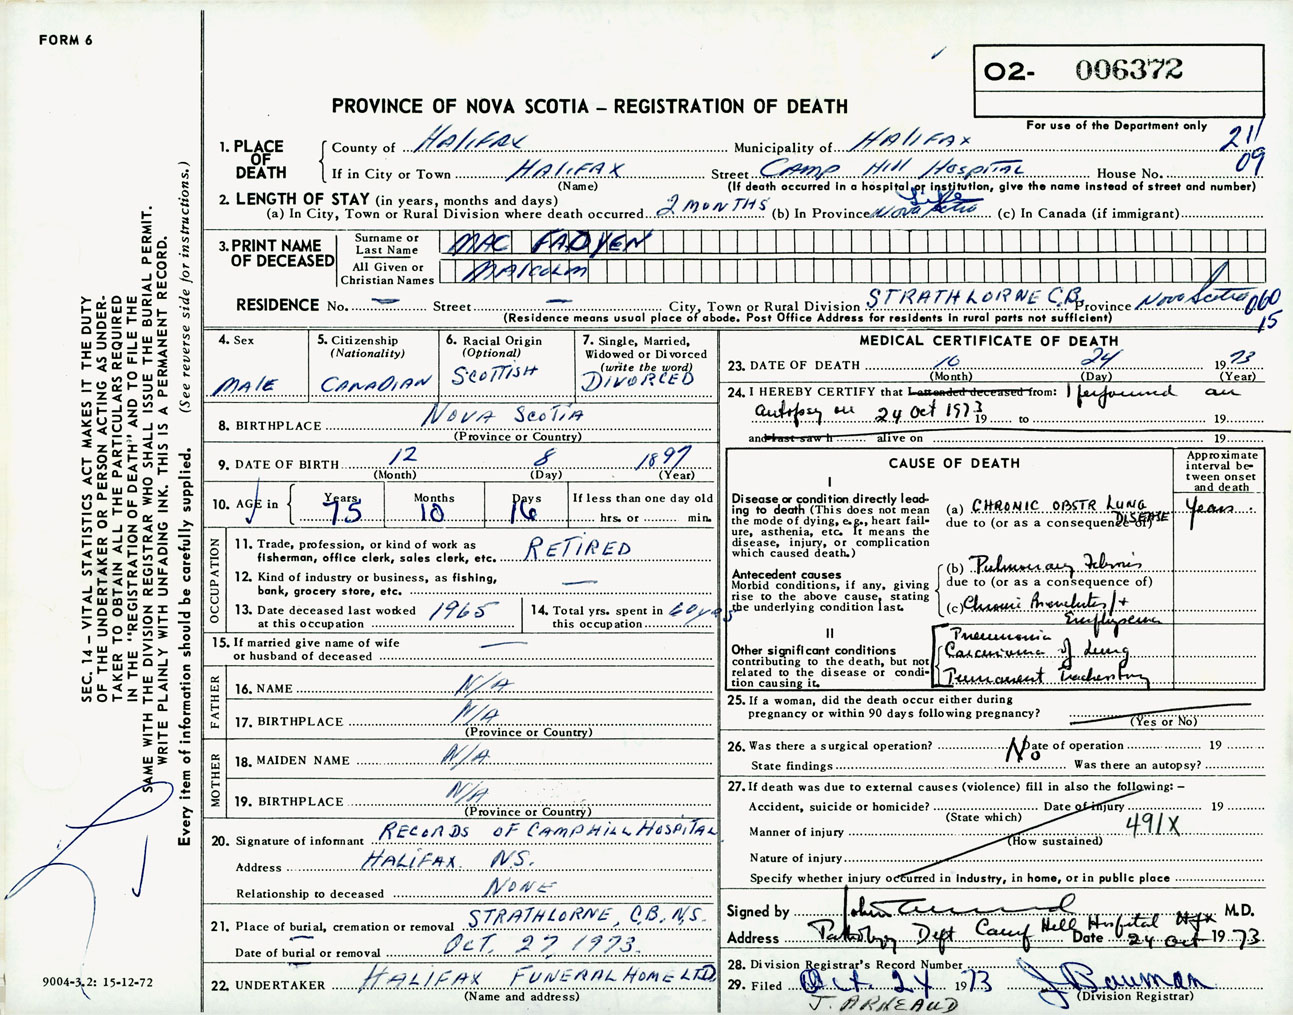 FORM 6
O2- 006372
PROVINCE OF NOVA SCOTIA – REGISTRATION OF DEATH
For use of the Department only
211
09
1. PLACE OF DEATH
County of HALIFAX Municipality of HALIFAX
If in City or Town HALIFAX Street CAMP HILL HOSPITAL House No.
(Name) (If death occurred in a hospital or institution, give the name instead of street and number)
2. LENGTH OF STAY (in years, months and days)
(a) In City, Town or Rural Division where death occurred 2 MONTHS (b) In Province Life Nova Scotia (c) In Canada (if immigrant)
3. PRINT NAME OF DECEASED
Surname or Last Name MAC FADYEN
All Given or Christian Names MALCOLM
RESIDENCE No. — Street — City, Town or Rural Division STRATHLORNE C.B. Province Nova Scotia 060
15
(Residence means usual place of abode. Post Office Address for residents in rural parts not sufficient)
4. Sex
MALE
5. Citizenship
(Nationality)
CANADIAN
6. Racial Origin
(Optional)
SCOTTISH
7. Single, Married,
Widowed or Divorced
(write the word)
DIVORCED
8. BIRTHPLACE NOVA SCOTIA
(Province or Country)
9. DATE OF BIRTH 12 8 1897
(Month) (Day) (Year)
10. AGE in
Years 75
Months 10
Days 16
If less than one day old
hrs. or min.
OCCUPATION
11. Trade, profession, or kind of work as
fisherman, office clerk, sales clerk, etc. RETIRED
12. Kind of industry or business, as fishing,
bank, grocery store, etc. —
13. Date deceased last worked
at this occupation 1965
14. Total yrs. spent in
this occupation 60 yrs
15. If married give name of wife
or husband of deceased —
FATHER
16. NAME N/A
17. BIRTHPLACE N/A
(Province or Country)
MOTHER
18. MAIDEN NAME N/A
19. BIRTHPLACE N/A
(Province or Country)
20. Signature of informant RECORDS OF CAMPHILL HOSPITAL
Address HALIFAX N.S.
Relationship to deceased NONE
21. Place of burial, cremation or removal STRATHLORNE, C.B. N.S.
Date of burial or removal OCT. 27, 1973.
22. UNDERTAKER HALIFAX FUNERAL HOME LTD
(Name and address)
MEDICAL CERTIFICATE OF DEATH
23. DATE OF DEATH 10 24 1973
(Month) (Day) (Year)
24. I HEREBY CERTIFY that I attended deceased from: I performed an
autopsy on 24 Oct 1973 19 to 19
and last saw h alive on 19
CAUSE OF DEATH
Approximate interval between onset and death
I
Disease or condition directly leading to death (This does not mean the mode of dying, e.g., heart failure, asthenia, etc. It means the disease, injury, or complication which caused death.)
(a) CHRONIC OBSTR LUNG DISEASE Years.
due to (or as a consequence of)
Antecedent causes
Morbid conditions, if any, giving rise to the above cause, stating the underlying condition last.
(b) Pulmonary Fibrosis
due to (or as a consequence of)
(c) Chronic Bronchitis / + Emphysema
II
Other significant conditions
contributing to the death, but not related to the disease or condition causing it.
Pneumonia
Carcinoma of Lung
Permanent Tracheostomy
25. If a woman, did the death occur either during
pregnancy or within 90 days following pregnancy?
(Yes or No)
26. Was there a surgical operation? No Date of operation 19
State findings Was there an autopsy?
27. If death was due to external causes (violence) fill in also the following: –
Accident, suicide or homicide? Date of injury 19
(State which)
Manner of injury 491X
(How sustained)
Nature of injury
Specify whether injury occurred in industry, in home, or in public place
Signed by John M.D.
Address Pathology Dept Camp Hill Hospital Hfx Date 24 Oct 1973
28. Division Registrar's Record Number
29. Filed Oct. 24 1973 J Bauman
(Division Registrar)
J. ARNEAUD
SEC. 14 – VITAL STATISTICS ACT MAKES IT THE DUTY
OF THE UNDERTAKER OR PERSON ACTING AS UNDER-
TAKER TO OBTAIN ALL THE PARTICULARS REQUIRED
IN THE "REGISTRATION OF DEATH" AND TO FILE THE
SAME WITH THE DIVISION REGISTRAR WHO SHALL ISSUE THE BURIAL PERMIT.
WRITE PLAINLY WITH UNFADING INK. THIS IS A PERMANENT RECORD.
Every item of information should be carefully supplied. (See reverse side for instructions.)
9004-3.2: 15-12-72